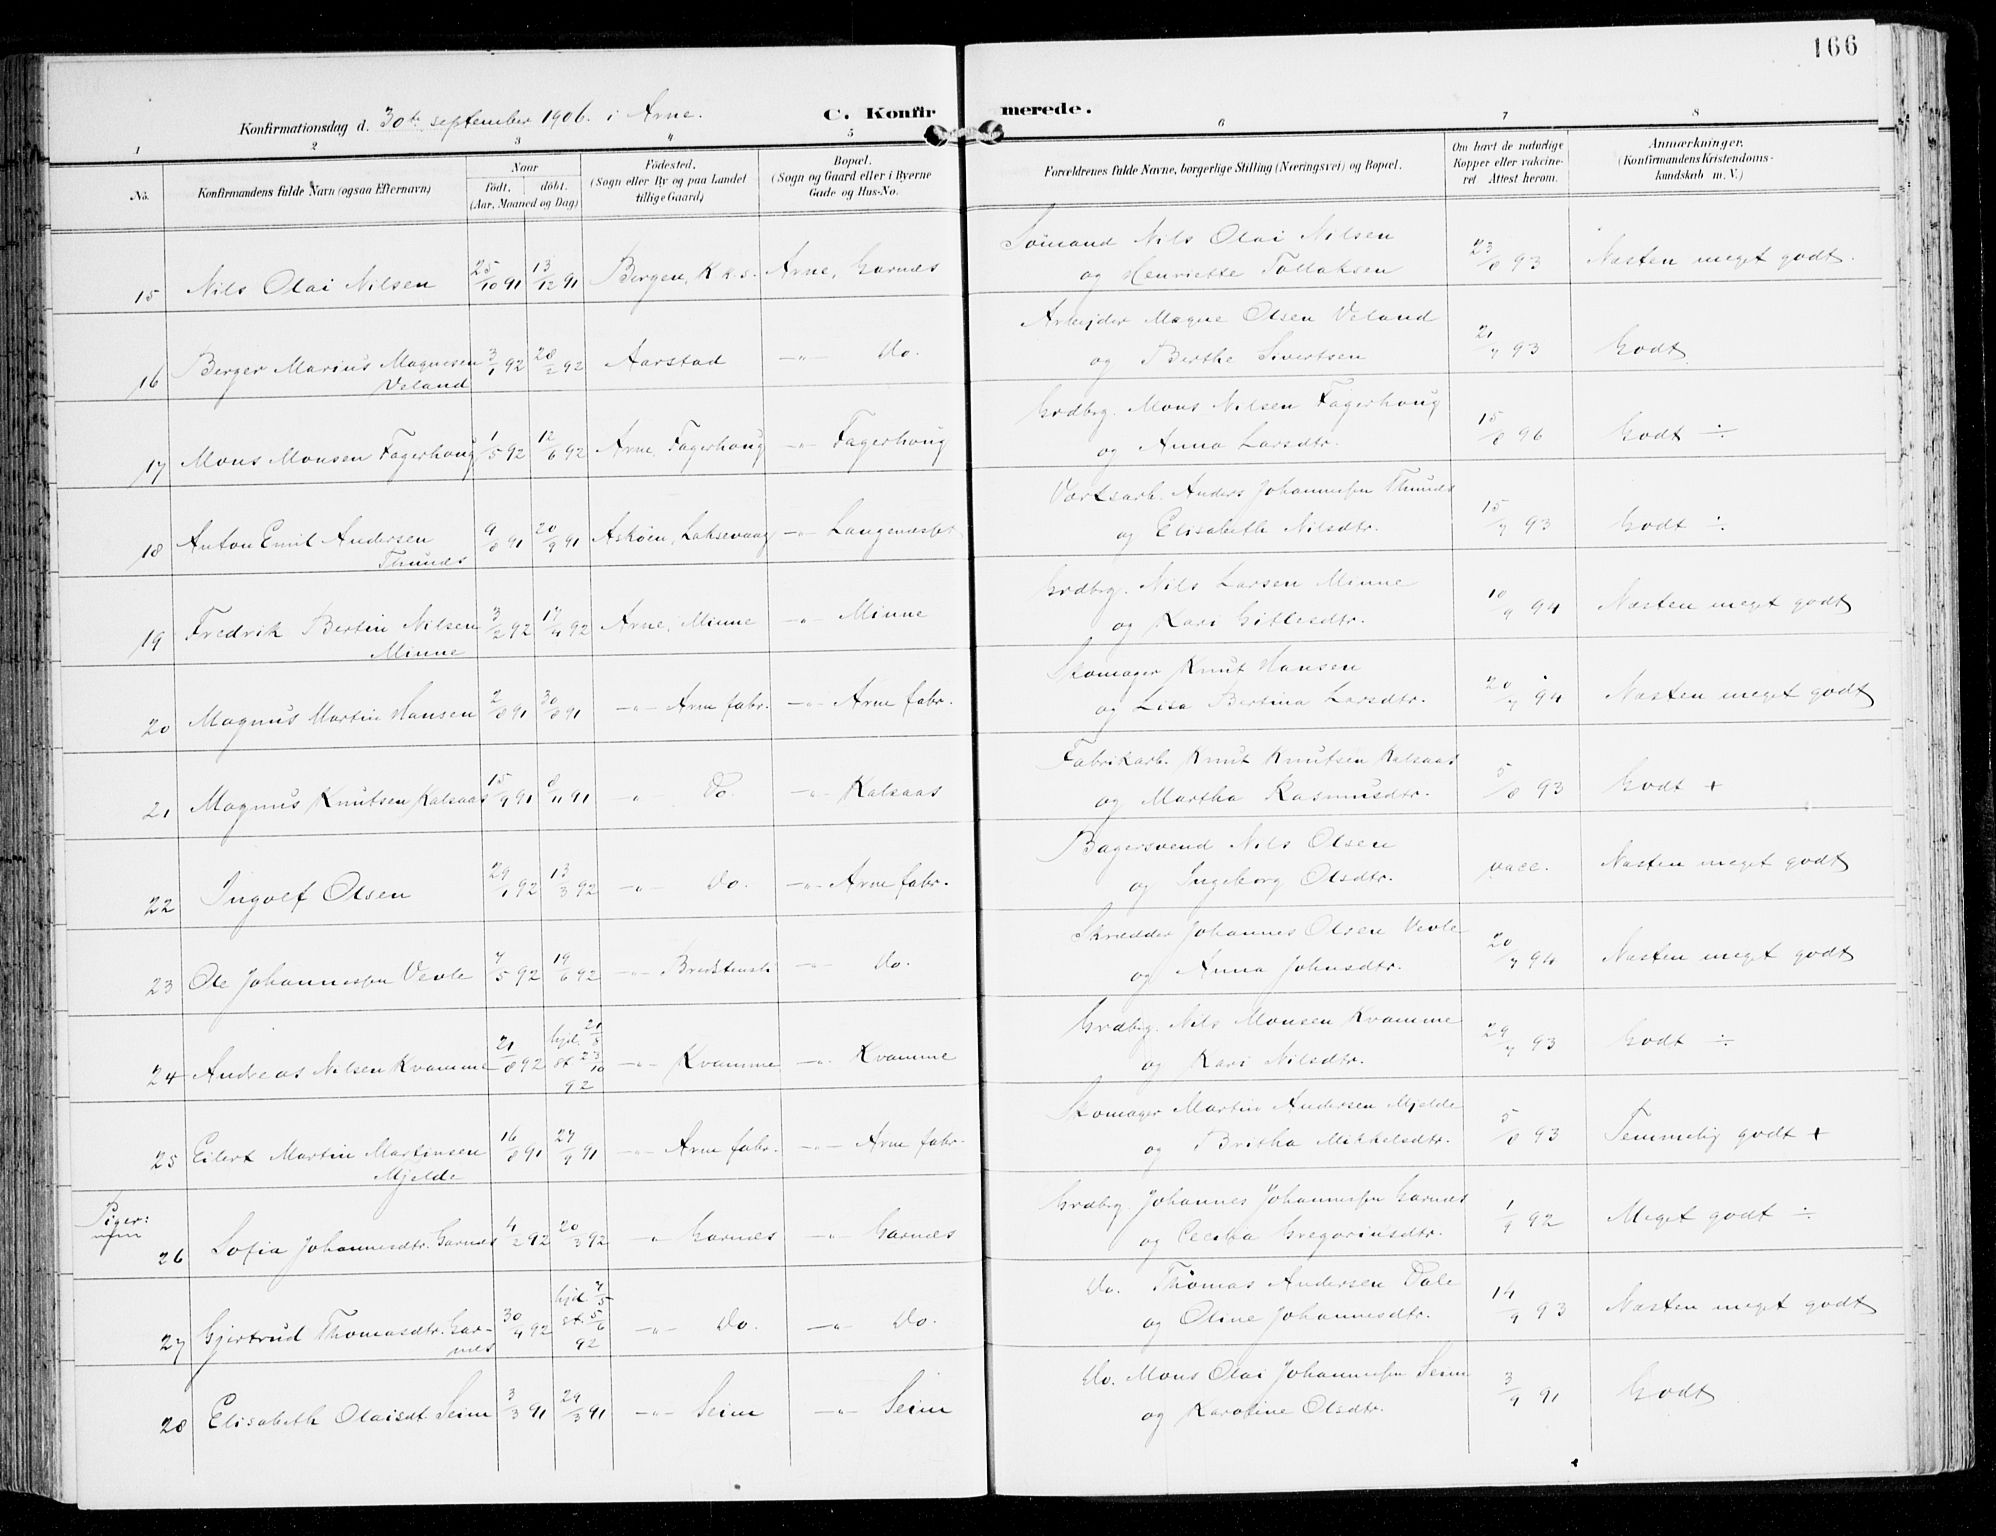 166
Konfirmationsdag d. 30te september 1906. i Arne. C. Konfirmerede.
1 2 3 4 5 6 7 8
No. Konfirmandens fulde Navn (ogsaa Efternavn) Naar født, døbt. (Aar, Maaned og Dag) Fødested. (Sogn eller By og paa Landet tillige Gaard) Bopæl. (Sogn og Gaard eller i Byerne Gade og Hus-No. Forældrenes fulde Navne, borgerlige Stilling (Næringsvei) og Bopæl. Om havt de naturlige Kopper eller vakcineret. Attest herom. Anmærkninger. (Konfirmandens Kristendomskundskab m. V.)
15 Nils Olai Nilsen 25/10 91 13/12 91 Bergen, K.k.s. Arne, Garnæs Sømand Nils Olai Nilsen
og Henriette Tollaksen 23/8 93 Næsten meget godt.
16 Berger Marius Magnesen
Veland 3/1 92 28/2 92 Aarstad -"- Do. Arbejder Magne Olsen Veland
og Berthe Sivertsen 21/7 93 Godt
17 Mons Monsen Fagerhoug 1/5 92 12/6 92 Arne, Fagerhoug -"- Fagerhoug Grdbrg. Mons Nilsen Fagerhoug
og Anna Larsdtr. 15/8 96 Godt ÷
18 Anton Emil Andersen
Thunæs 9/8 91 20/9 91 Askøen, Laksevaag -"- Anders Johannessen Thunæs
og Elisabeth Nilsdtr. 15/7 93 Godt ÷
19 Fredrik Bertin Nilsen
Minne 3/2 92 17/4 92 Arne, Minne -"- Minne Grdbrg. Nils Larsen Minne
og Kari Gitlesdtr. 10/9 94 Næsten meget godt
20 Magnus Martin Hansen 2/8 91 30/8 91 -"- Arne fabr. -"- Arne fabr. Skomager Knut Hansen
og Lisa Bertina Larsdtr. 20/7 94 Næsten meget godt
21 Magnus Knutsen Kalsaas 15/9 91 8/11 91 -"- Do. -"- Kalsaas Fabrikarb. Knut Knutsen Kalsaas
og Martha Rasmusdtr. 5/8 93 Godt +
22 Ingolf Olsen 29/1 92 13/3 92 -"- Do. -"- Arne fabr. Bagersvend Nils Olsen
og Ingeborg Olsdtr. vacc. Næsten meget godt
23 Ole Johannessen Vevle 7/5 92 19/6 92 -"- -"- Do. Skrædder Johannes Olsen Vevle
og Anna Johnsdtr. 20/7 94 Næsten meget godt
24 Andreas Nilsen Kvamme 21/8 92 hjd. 21/8 st. 23/10 92 -"- Kvamme -"- Kvamme Grdbrg. Nils Monsen Kvamme
og Kari Nilsdtr. 29/7 93 Godt ÷
25 Eilert Martin Martinsen
Mjelde 16/8 91 27/9 91 -"- Arne fabr. -"- Arne fabr. Skomager Martin Andersen Mjelde
og Britha Mikkelsdtr. 5/8 93 Temmelig godt +
Piger:
26 Sofia Johannesdtr. Garnæs 4/2 92 20/3 92 -"- Garnæs -"- Garnæs Grdbrg. Johannes Johannessen Garnæs
og Cecilia Gregoriusdtr. 1/9 92 Meget godt ÷
27 Gjertrud Thomasdtr. Garnæs 30/4 92 hjd. 7/5 st. 5/6 92 -"- Do. -"- Do. Do. Thomas Andersen Dale
og Oline Johannesdtr. 14/9 93 Næsten meget godt
28 Elisabeth Olaisdt Seim 3/3 91 29/3 91 -"- Seim -"- Seim Do. Mons Olai Johannessen Seim
og Karoline Olsdtr. 3/9 91 Godt